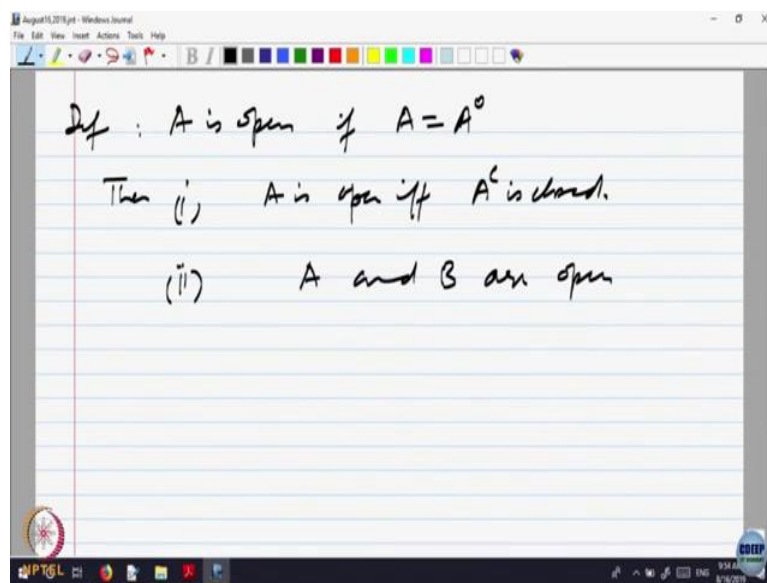 August16,2019.jnt - Windows Journal
File Edit View Insert Actions Tools Help
B I
Def : A is open if A = A⁰
Then (i) A is open iff Aᶜ is closed.
(ii) A and B are open
NPTEL
CDEEP
ENG
9:54 AM
8/16/2019